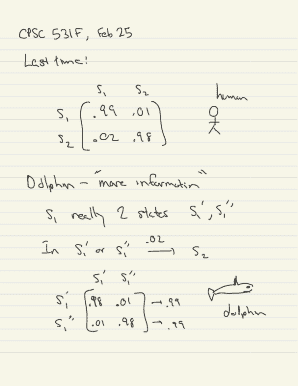 CPSC 531F, Feb 25
Last time:
S₁ S₂
S₁ .99 .01
S₂ .02 .98
human
Dolphin - "more information"
S₁ really 2 states S₁', S₁''
In S₁' or S₁'' .02 → S₂
S₁' S₁''
S₁' .98 .01 → .99
S₁'' .01 .98 → .99
dolphin